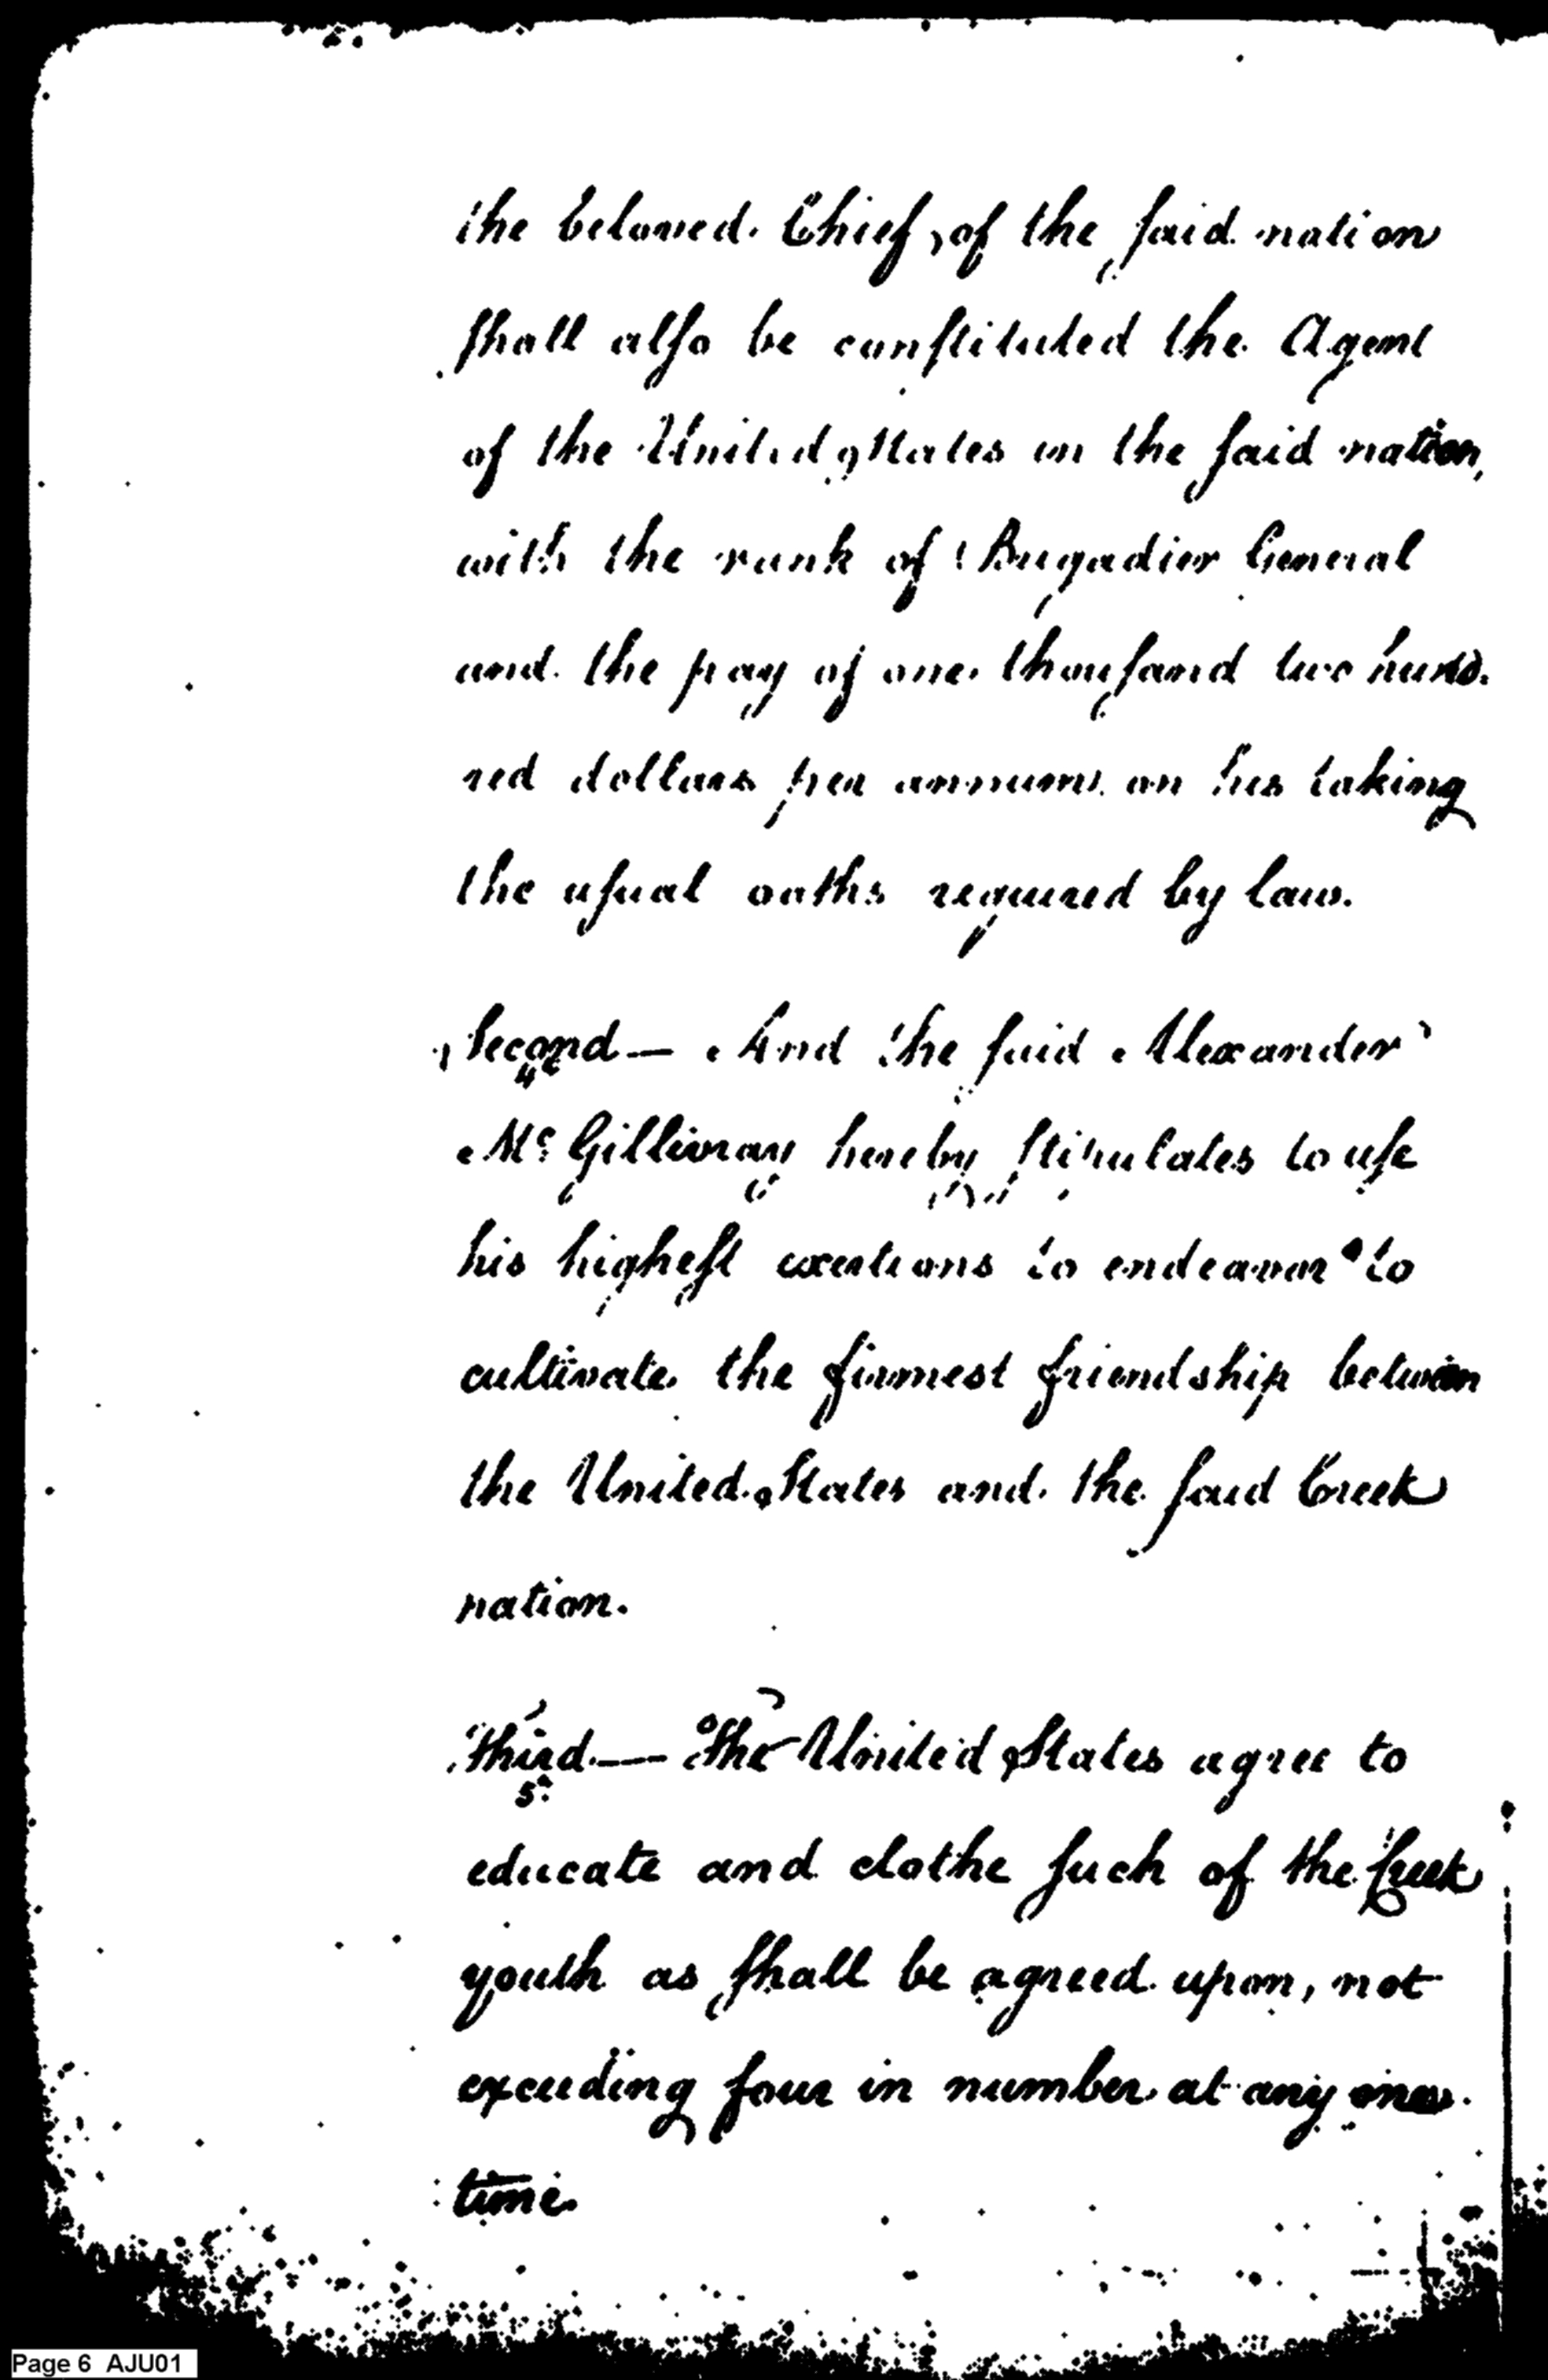 the beloved Chief, of the said nation
shall also be constituted the Agent
of the United States in the said nation,
with the rank of Brigadier General
and the pay of one thousand two hund-
red dollars per annum on his taking
the usual oaths required by law.
Second — And the said Alexander
4th
McGillivray hereby stipulates to use
his highest exertions to endeavor to
cultivate the firmest friendship between
the United States and the said Creek
nation.
Third — The United States agree to
5th
educate and clothe such of the Creek
youth as shall be agreed upon, not
exceeding four in number at any one
time.
Page 6 AJU01